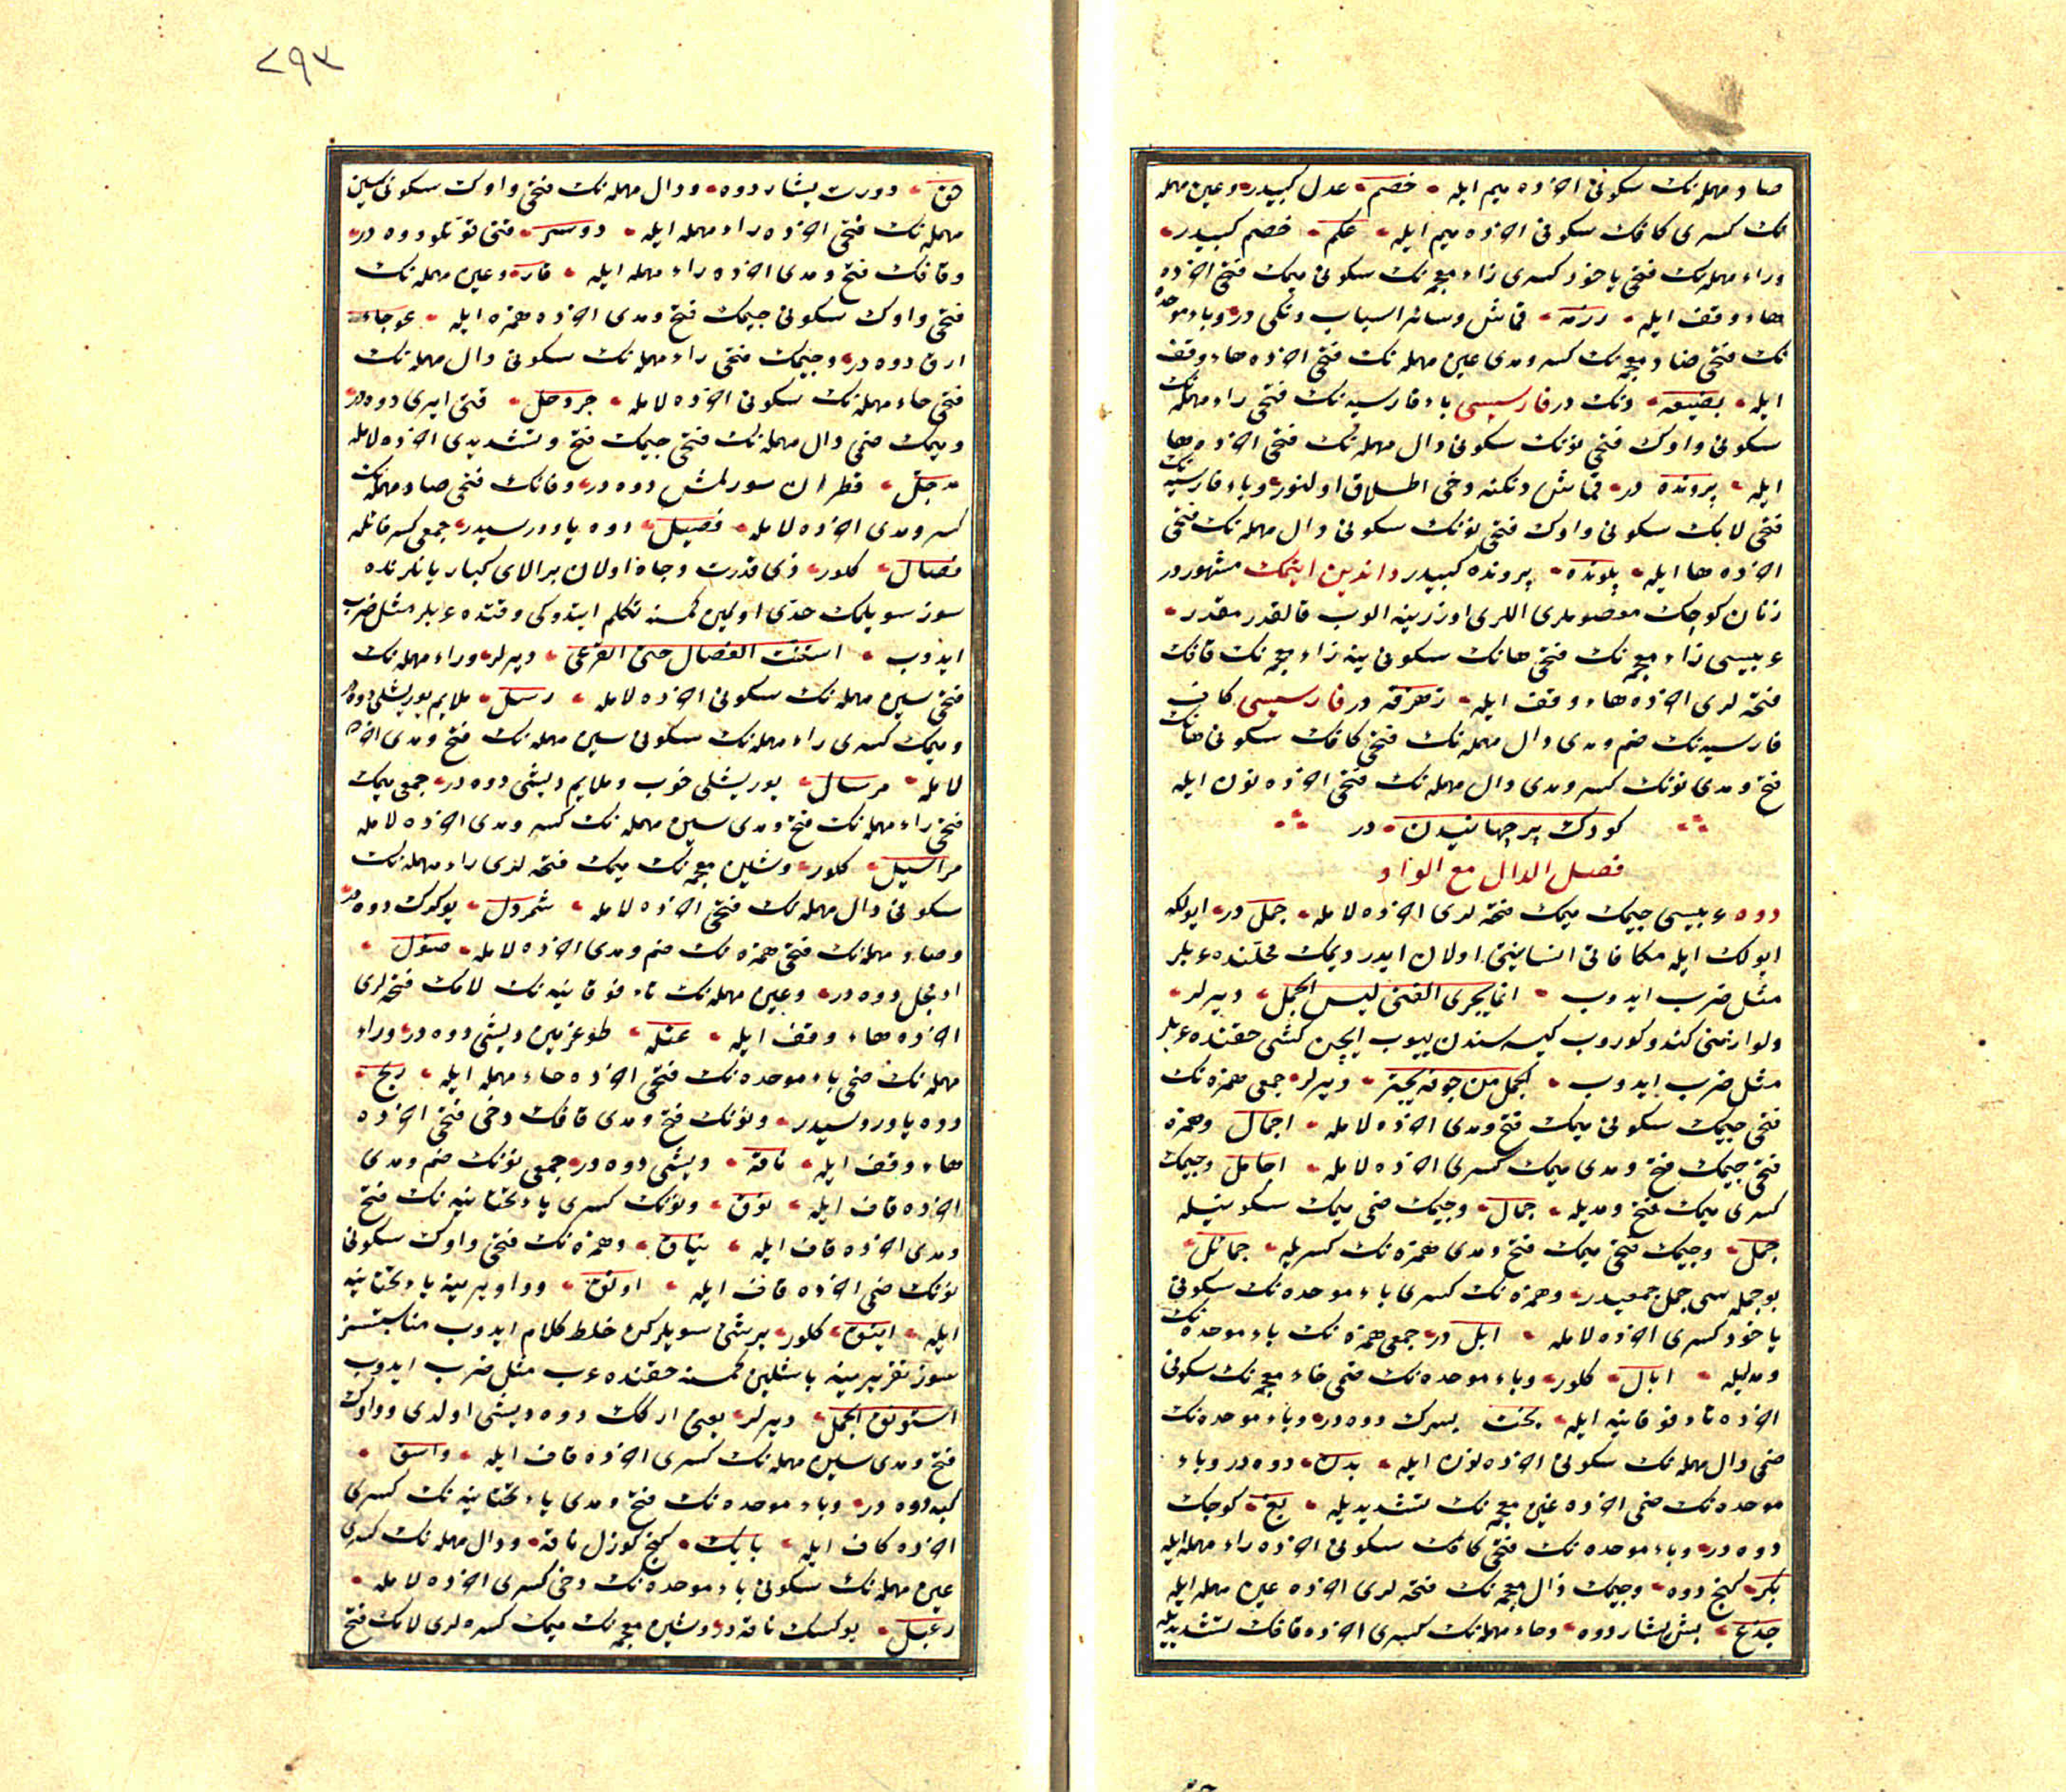 صاد مهمله‌نك سكونى اخرده ميم ايله خصم عدل كبيدر وعين مهمله
نك كسرى كافك سكونى اخرده ميم ايله عكم خصم كبيدر
وراء مهمله‌نك فتحى ياخود كسرى زاء معجمه‌نك سكونى ميمك فتحى اخرده
هاء وقف ايله رزمه قماش وسائر اسباب دنكى در وباء موحده
نك فتحى ضاد معجمه‌نك كسر ومدى عين مهمله‌نك فتحى اخرده هاء وقف
ايله بضيعه دنك در فارسيسى باء فارسيه‌نك فتحى راء مهمله‌نك
سكونى واوك فتحى نونك سكونى دال مهمله‌نك فتحى اخرده ها
ايله پرونده در قماش دنكنه دخى اطلاق اولنور وباء فارسيه‌نك
فتحى لامك سكونى واوك فتحى نونك سكونى دال مهمله‌نك فتحى
اخرده ها ايله پلونده پرونده كبيدر داندين ايتمك مشهوردر
زنان كوچك معصوملرى اللرى اوزرينه الوب قالقدرمقدر
عربيسى زاء معجمه‌نك فتحى هانك سكونى ينه زاء معجمه‌نك قافك
فتحه‌لرى اخرده هاء وقف ايله زهزقه در فارسيسى كاف
فارسيه‌نك ضم ومدى دال مهمله‌نك فتحى كافك سكونى هانك
فتح ومدى نونك كسر ومدى دال مهمله‌نك فتحى اخرده نون ايله
كودك برجهانيدن در
فصل الدال مع الواو
دوه عربيسى جيمك ميمك فتحه‌لرى اخرده لامله جمل در ايولكه
ايولك ايله مكافاتى انسانيتى اولان ايدر ديمك محلنده عربلر
مثل ضرب ايدوب انما يجزى الفتى ليس الجمل ديرلر
ولوازمنى كندو كوروب كيسه‌سندن ييوب ايچن كشى حقنده عربلر
مثل ضرب ايدوب الجمل من جوفه يجتر ديرلر جمعى همزه‌نك
فتحى جيمك سكونى ميمك فتح ومدى اخرده لامله اجمال وهمزه
فتحى جيمك فتح ومدى ميمك كسرى اخرده لامله اجامل وجيمك
كسرى ميمك فتح ومديله جمال وجيمك ضمى ميمك سكونيله
جمل وجيمك فتحى ميمك فتح ومدى همزه‌نك كسريله جمائل
بو جمله‌سى جمل جمعيدر وهمزه‌نك كسرى باء موحده‌نك سكونى
ياخود كسرى اخرده لامله ابل در جمعى همزه‌نك باء موحده‌نك
ومديله ابال كلور وباء موحده‌نك ضمى خاء معجمه‌نك سكونى
اخرده تاء فوقانيه ايله بخت يسرك دوه‌در وباء موحده‌نك
ضمى دال مهمله‌نك سكونى اخرده نون ايله بدن دوه‌در وباء
موحده‌نك ضمى اخرده غين معجمه‌نك تشديديله بغ كوچك
دوه‌در وباء موحده‌نك فتحى كافك سكونى اخرده راء مهمله ايله
بكر كنج دوه وجيمك ذال معجمه‌نك فتحه‌لرى اخرده عين مهمله ايله
جذع بش يشار دوه وحاء مهمله‌نك كسرى اخرده قافك تشديديله
٢٩٣
حق دورت يشار دوه ودال مهمله‌نك فتحى واوك سكونى سين
مهمله‌نك فتحى اخرده راء مهمله ايله دوسر قتى قوتلو دوه‌در
وقافك فتح ومدى اخرده راء مهمله ايله قاره وعين مهمله‌نك
فتحى واوك سكونى جيمك فتح ومدى اخرده همزه ايله عوجاء
ارق دوه‌در وجيمك فتحى راء مهمله‌نك سكونى دال مهمله‌نك
فتحى حاء مهمله‌نك سكونى اخرده لامله جردحل قتى ايرى دوه‌در
وميمك ضمى دال مهمله‌نك فتحى جيمك فتح وتشديدى اخرده لامله
مدجل قطران سورلمش دوه‌در وفانك فتحى صاد مهمله‌نك
كسر ومدى اخرده لامله فصيل دوه ياوروسيدر جمعى كسر فائله
فصال كلور ذى قدرت وجاه اولان برالاى كبار يانلرنده
سوز سويلمك حدى اولمين كمسنه تكلم ايتدوكى وقتده عربلر مثل ضرب
ايدوب استنت الفصال حتى القرعى ديرلر وراء مهمله‌نك
فتحى سين مهمله‌نك سكونى اخرده لامله رسل ملايم يوريشلى دوه‌در
وميمك كسرى راء مهمله‌نك سكونى سين مهمله‌نك فتح ومدى اخرده
لامله مرسال يوريشلى خوب وملايم ديشى دوه‌در جمعى ميمك
فتحى راء مهمله‌نك فتح ومدى سين مهمله‌نك كسر ومدى اخرده لامله
مراسيل كلور وشين معجمه‌نك ميمك فتحه‌لرى راء مهمله‌نك
سكونى دال مهمله‌نك فتحى اخرده لامله شمردل يوكرك دوه‌در
وصاد مهمله‌نك فتحى همزه‌نك ضم ومدى اخرده لامله صئول
ادنجل دوه‌در وعين مهمله‌نك تاء فوقانيه‌نك لامك فتحه‌لرى
اخرده هاء وقف ايله عتله طوغرمين ديشى دوه‌در وراء
مهمله‌نك ضمى باء موحده‌نك فتحى اخرده حاء مهمله ايله ربح
دوه ياوروسيدر ونونك فتح ومدى قافك دخى فتحى اخرده
هاء وقف ايله ناقه ديشى دوه‌در جمعى نونك ضم ومدى
اخرده قاف ايله نوق ونونك كسرى ياء تحتانيه‌نك فتح
ومدى اخرده قاف ايله نياق وهمزه‌نك فتحى واوك سكونى
نونك ضمى اخرده قاف ايله اونق وواو يرينه ياء تحتانيه
ايله اينق كلور برشى سويلركن خلط كلام ايدوب مناسبتسز
سوز تقريرينه باشلين كمسنه حقنده عرب مثل ضرب ايدوب
استنوق الجمل ديرلر يعنى اركك دوه ديشى اولدى وواوك
فتح ومدى سين مهمله‌نك كسرى اخرده قاف ايله واسق
كبه دوه‌در وباء موحده‌نك فتح ومدى ياء تحتانيه‌نك كسرى
اخرده كاف ايله بايك كنج كوزل ناقه ودال مهمله‌نك كسرى
عين مهمله‌نك سكونى باء موحده‌نك دخى كسرى اخرده لامله
دعبل يوكسك ناقه‌در وشين معجمه‌نك ميمك كسره‌لرى لامك فتح